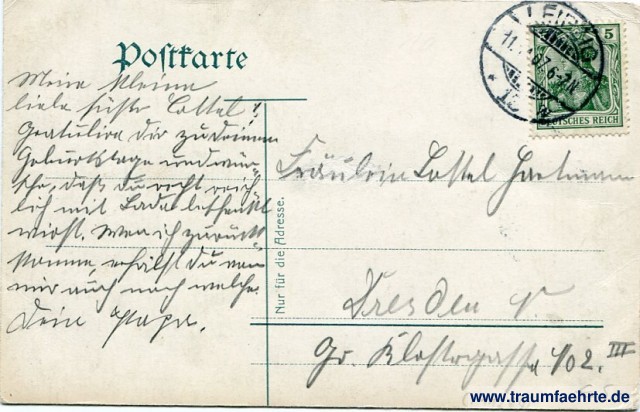 Postkarte
Meine kleine
liebe süße Lottel!
Gratuliere dir zu deinem
Geburtstage und wün-
sche, daß du recht reich-
lich mit
wirst. Wenn ich zurück
komme, erhälst du von
mir auch noch welche.
Dein Papa.
Nur für die Adresse.
LEIPZIG
11. 07. 6-7N
5
DEUTSCHES REICH
Fräulein Lottel Hartmann
Dresden
Gr. Klostergasse 102 III
www.traumfaehrte.de